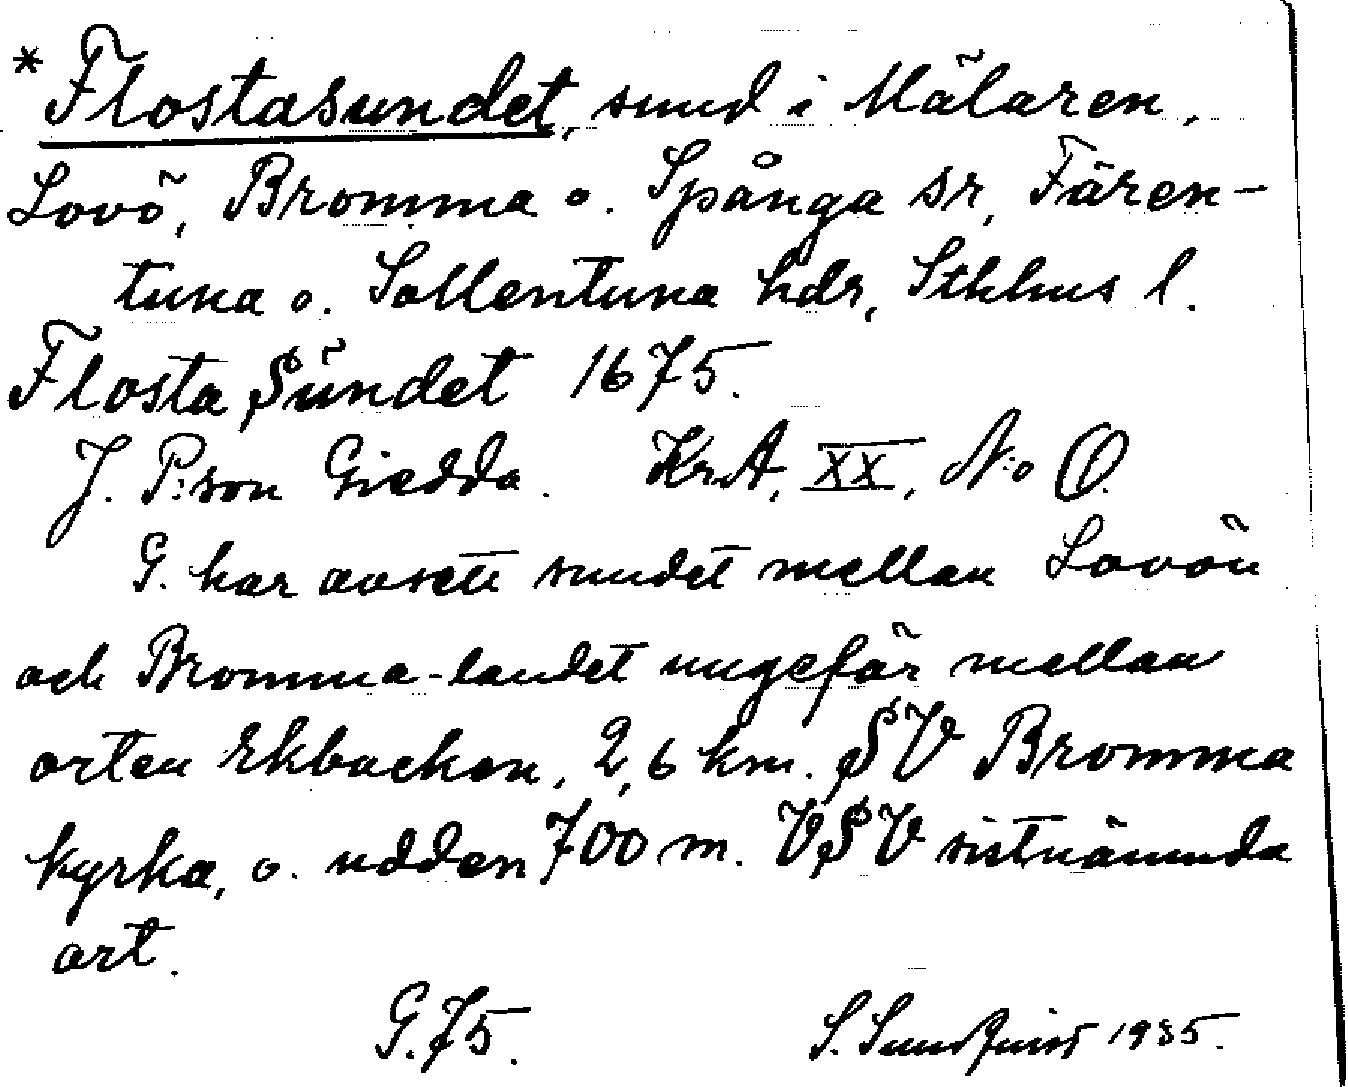 * Flostasundet, sund i Mälaren,
Lovö, Bromma o. Spånga sr, Fären-
tuna o. Sollentuna hdr, Sthlms l.
Flosta Sŭndet 1675.
J. P:son Giedda. KrA, XX, N:o O.
G. har avsett sundet mellan Lovön
och Bromma-landet ungefär mellan
orten Ekbacken, 2,6 km. SV Bromma
kyrka, o. udden 700 m. VSV sistnämnda
ort.
G. 75. S. Sundquist 1935.